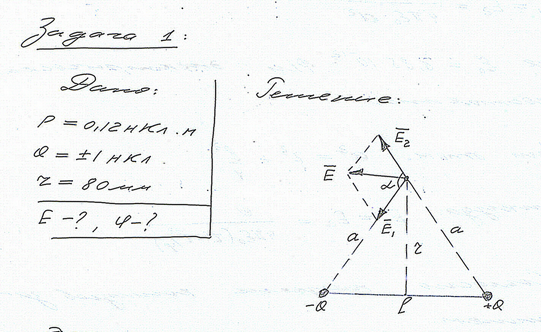 Задача 1:
Дано:
P = 0,12 нКл · м
Q = ±1 нКл
r = 80 мм
E - ?, φ - ?
Решение:
E̅₂
E̅
α
E̅₁
a
r
a
-Q
l
+Q